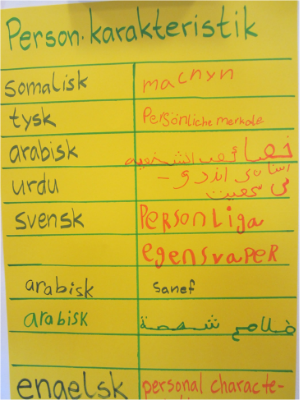 Person.karakteristik
somalisk machyn
tysk Persönliche merkmale
arabisk خصائص الشخصية
urdu
svensk Personliga
egensvaper
arabisk sanef
arabisk شخصة
engelsk personal characte-